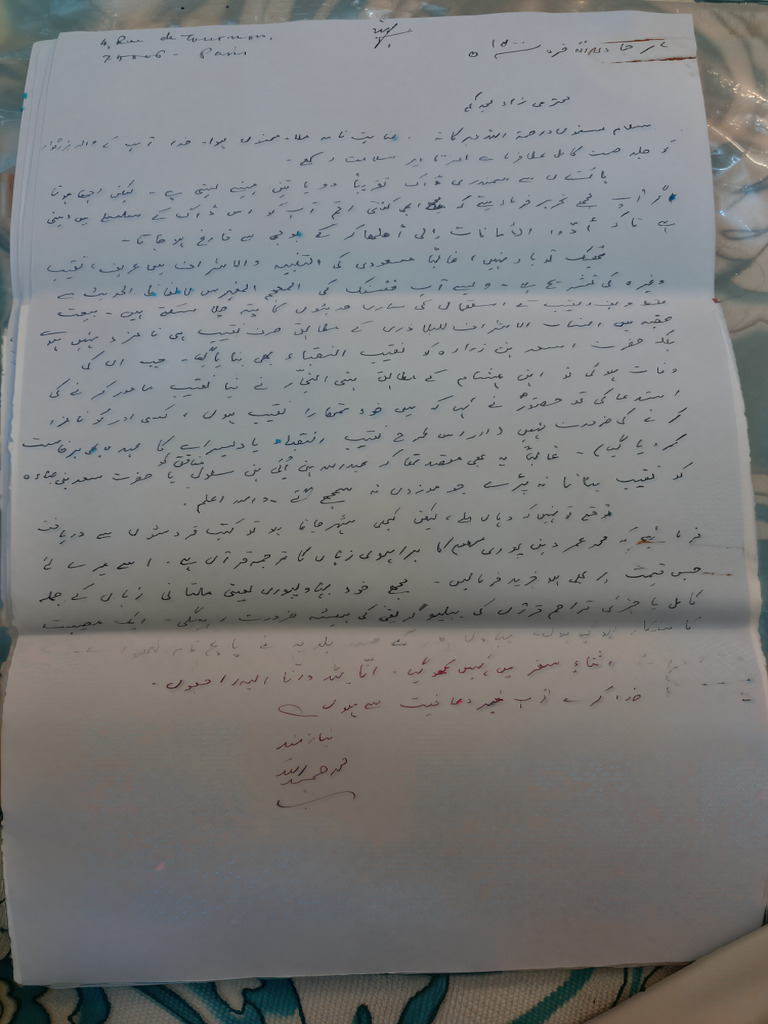 4, Rue de Tournon,
75006 - Paris
محترمی زاد مجدکم
سلام مسنون ورحمۃ اللہ وبرکاتہ۔ عنایت نامہ ملا۔ ممنون ہوا۔ خدا آپ کے والد بزرگوار
کو جلد صحت کامل عطا فرمائے اور تا دیر سلامت رکھے۔
پاکستان سے سمندری ڈاک تقریباً دو یا تین مہینے لیتی ہے۔ لیکن اچھا ہوتا
اگر آپ مجھے تحریر فرما دیتے کہ کتنی رقم آپ کو اس ڈاک کے سلسلے میں دینی
ہے تاکہ أدّوا الأمانات إلى أهلها کر کے بوجھ سے فارغ ہو جاتا۔
ٹھیک تو یاد نہیں، غالباً مسعودی کی التنبیه والاشراف میں عریف، نقیب
وغیرہ کی تشریح ہے۔ ویسے آپ فنسنک کی المعجم المفهرس لألفاظ الحدیث سے
لفظ نقیب کے استعمال کی ساری حدیثوں کا پتہ چلا سکتے ہیں۔ بیعت
عقبہ میں انساب الاشراف للبلاذری کے مطابق صرف نقیب ہی نامزد نہیں ہوئے
بلکہ حضرت اسعد بن زرارہ کو نقیب النقباء بھی بنایا گیا۔ جب ان کی
وفات ہوئی تو ابن ہشام کے مطابق بنی النجّار نے نیا نقیب مامور کرنے کی
استدعا کی تو حضورؐ نے کہا کہ میں خود تمھارا نقیب ہوں، کسی اور کو نامزد
کرنے کی ضرورت نہیں (اور اس طرح نقیب النقباء یا وایسرائے کا عہدہ بھی برخاست
کر دیا گیا)۔ غالباً یہ بھی مقصد تھا کہ عبداللہ بن اُبَیّ بن سلول منافق کو یا حضرت سعد بن عبادہ
کو نقیب بنانا نہ پڑے جو موزوں نہ سمجھے گئے۔ واللہ اعلم۔
توقع تو نہیں کہ وہاں ملے، لیکن کبھی شہر جانا ہو تو کتب فروشوں سے دریافت
فرمائیے کہ محمد عمر دین پوری کا براہوی زبان کا ترجمہ قرآن ہے۔ اسے میرے لئے
جس قیمت پر بھی ہو خرید فرما لیں۔ مجھے خود بہاولپوری یعنی ملتانی زبان کے جملہ
کامل یا جزئی تراجم قرآن کی ببلیوگرافی کی ہمیشہ ضرورت رہیگی۔ ایک مصیبت
کا شکار ہو گیا ہوں۔
اثناء سفر میں کہیں کھو گیا۔ انّا للہ وانّا الیہ راجعون۔
خدا کرے آپ خیر و عافیت سے ہوں
نیازمند
محمد حمید اللہ